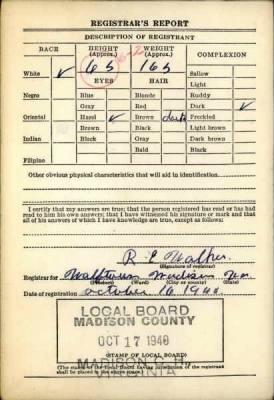 REGISTRAR'S REPORT
DESCRIPTION OF REGISTRANT
RACE HEIGHT (Approx.) WEIGHT (Approx.) COMPLEXION
White ✓ 65 165 Sallow
EYES HAIR Light
Negro Blue Blonde Ruddy
Gray Red Dark ✓
Oriental Hazel ✓ Brown dark Freckled
Brown Black Light brown
Indian Black Gray Dark brown
Bald Black
Filipino
Other obvious physical characteristics that will aid in identification
I certify that my answers are true; that the person registered has read or has had
read to him his own answers; that I have witnessed his signature or mark and that
all of his answers of which I have knowledge are true, except as follows:
R E
(Signature of registrar)
Registrar for Madison Va.
(Precinct) (Ward) (City or county) (State)
Date of registration October 16, 1940
LOCAL BOARD
MADISON COUNTY
OCT 17 1940
MADISON C. H.,
VIRGINIA
(STAMP OF LOCAL BOARD)
(The stamp of the Local Board having jurisdiction of the registrant
shall be placed in the above space.)